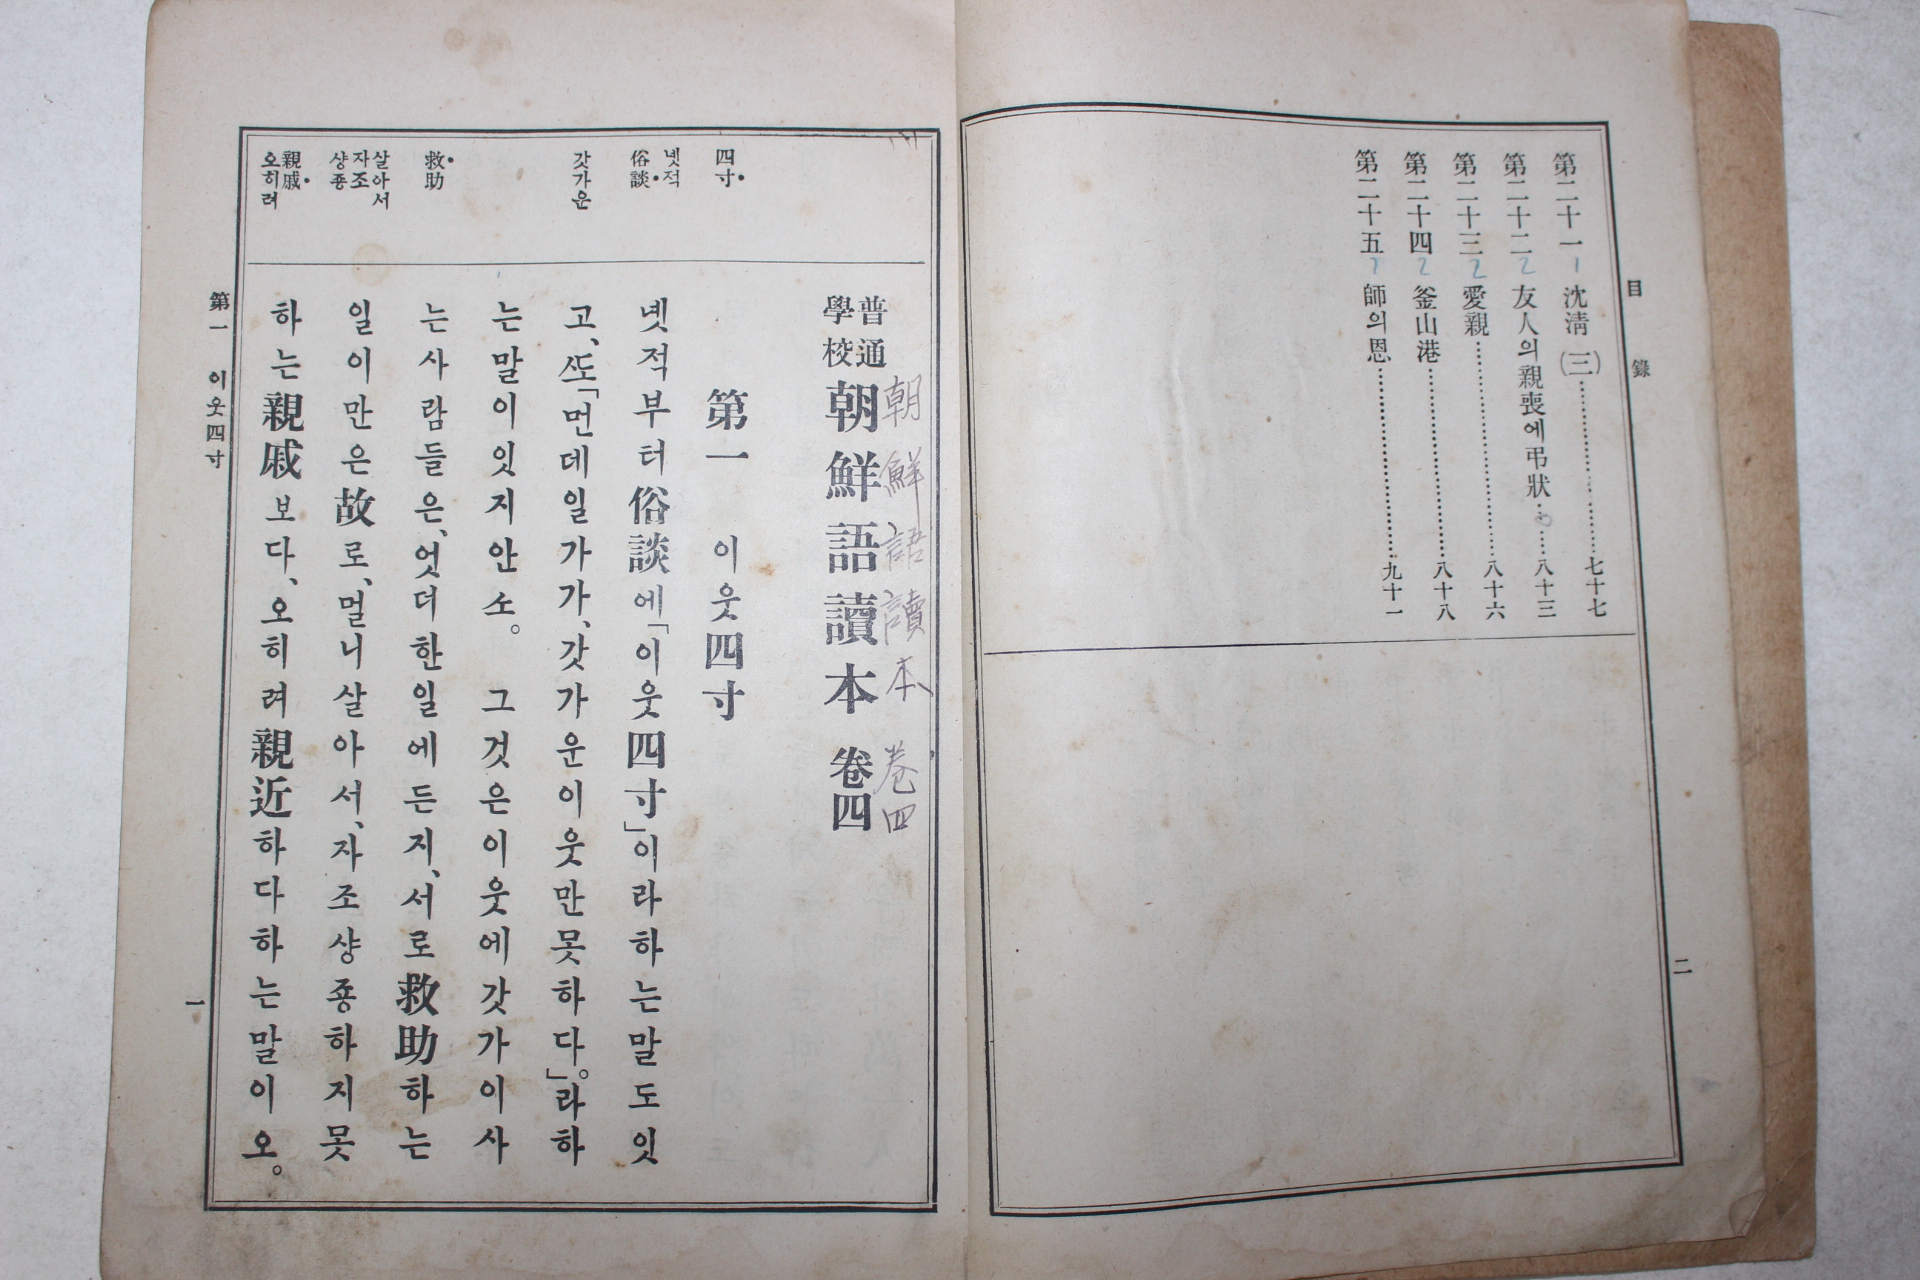 目錄
第二十一 沈淸(三)……七十七
第二十二 友人의親喪에弔狀……八十三
第二十三 愛親……八十六
第二十四 釜山港……八十八
第二十五 師의恩……九十一
二
朝鮮語讀本 卷四
普通學校 朝鮮語讀本 卷四
第一 이웃四寸
녯적부터俗談에「이웃四寸」이라하는말도잇
고、ᄯᅩ「먼데일가가、갓가운이웃만못하다。」라하
는말이잇지안소。 그것은이웃에갓가이사
는사람들은、엇더한일에든지、서로救助하는
일이만은故로、멀니살아서、자조샹죵하지못
하는親戚보다、오히려親近하다하는말이오。
四寸
녯적
俗談
갓가운
救助
살아서
자조
샹죵
親戚
오히려
第一 이웃四寸
一